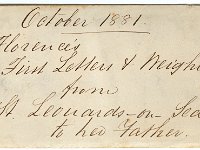 October 1881.
Florence's
First Letters & Weigh
from
St. Leonards-on-Sea
to her Father.